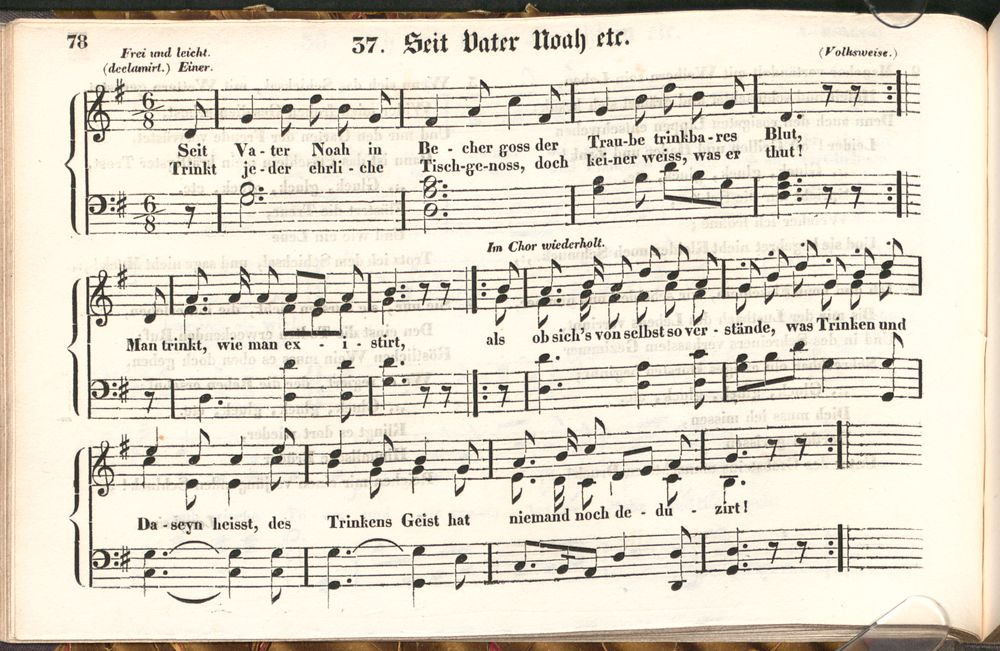 78
37. Seit Vater Noah etc.
Frei und leicht.
(declamirt.) Einer.
(Volksweise.)
Seit Va-ter Noah in Be-cher goss der Trau-be trinkba-res Blut,
Trinkt je-der ehrli-che Tisch-ge-noss, doch kei-ner weiss, was er thut!
Im Chor wiederholt.
Man trinkt, wie man ex-i-stirt, als ob sich's von selbst so ver-stände, was Trinken und
Da-seyn heisst, des Trinkens Geist hat niemand noch de-du-zirt!